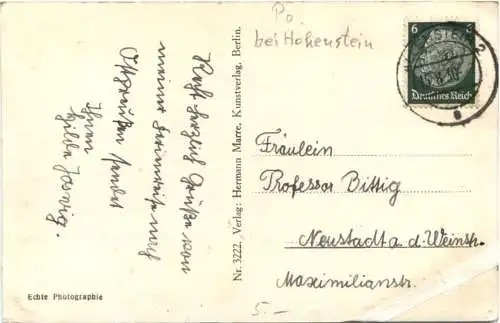 Recht herzliche Grüße von
meiner Ferienreise nach
Ostpreußen sendet
Ihnen
Hilde
Echte Photographie
Nr. 3222. Verlag: Hermann Marre, Kunstverlag, Berlin.
Po
bei Hohenstein
6
Deutsches Reich
Fräulein
Professor Bittig
Neustadt a. d. Weinstr.
Maximilianstr.
5.–